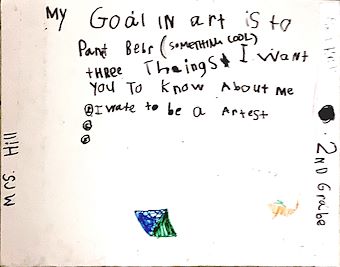 My Goal IN art is to
Pant Behr (SOMETHING COOL)
tHREE Thaings I want
you To know About me
① I wate to be a Artest
②
③
Mrs. Hill
2ND Graibe